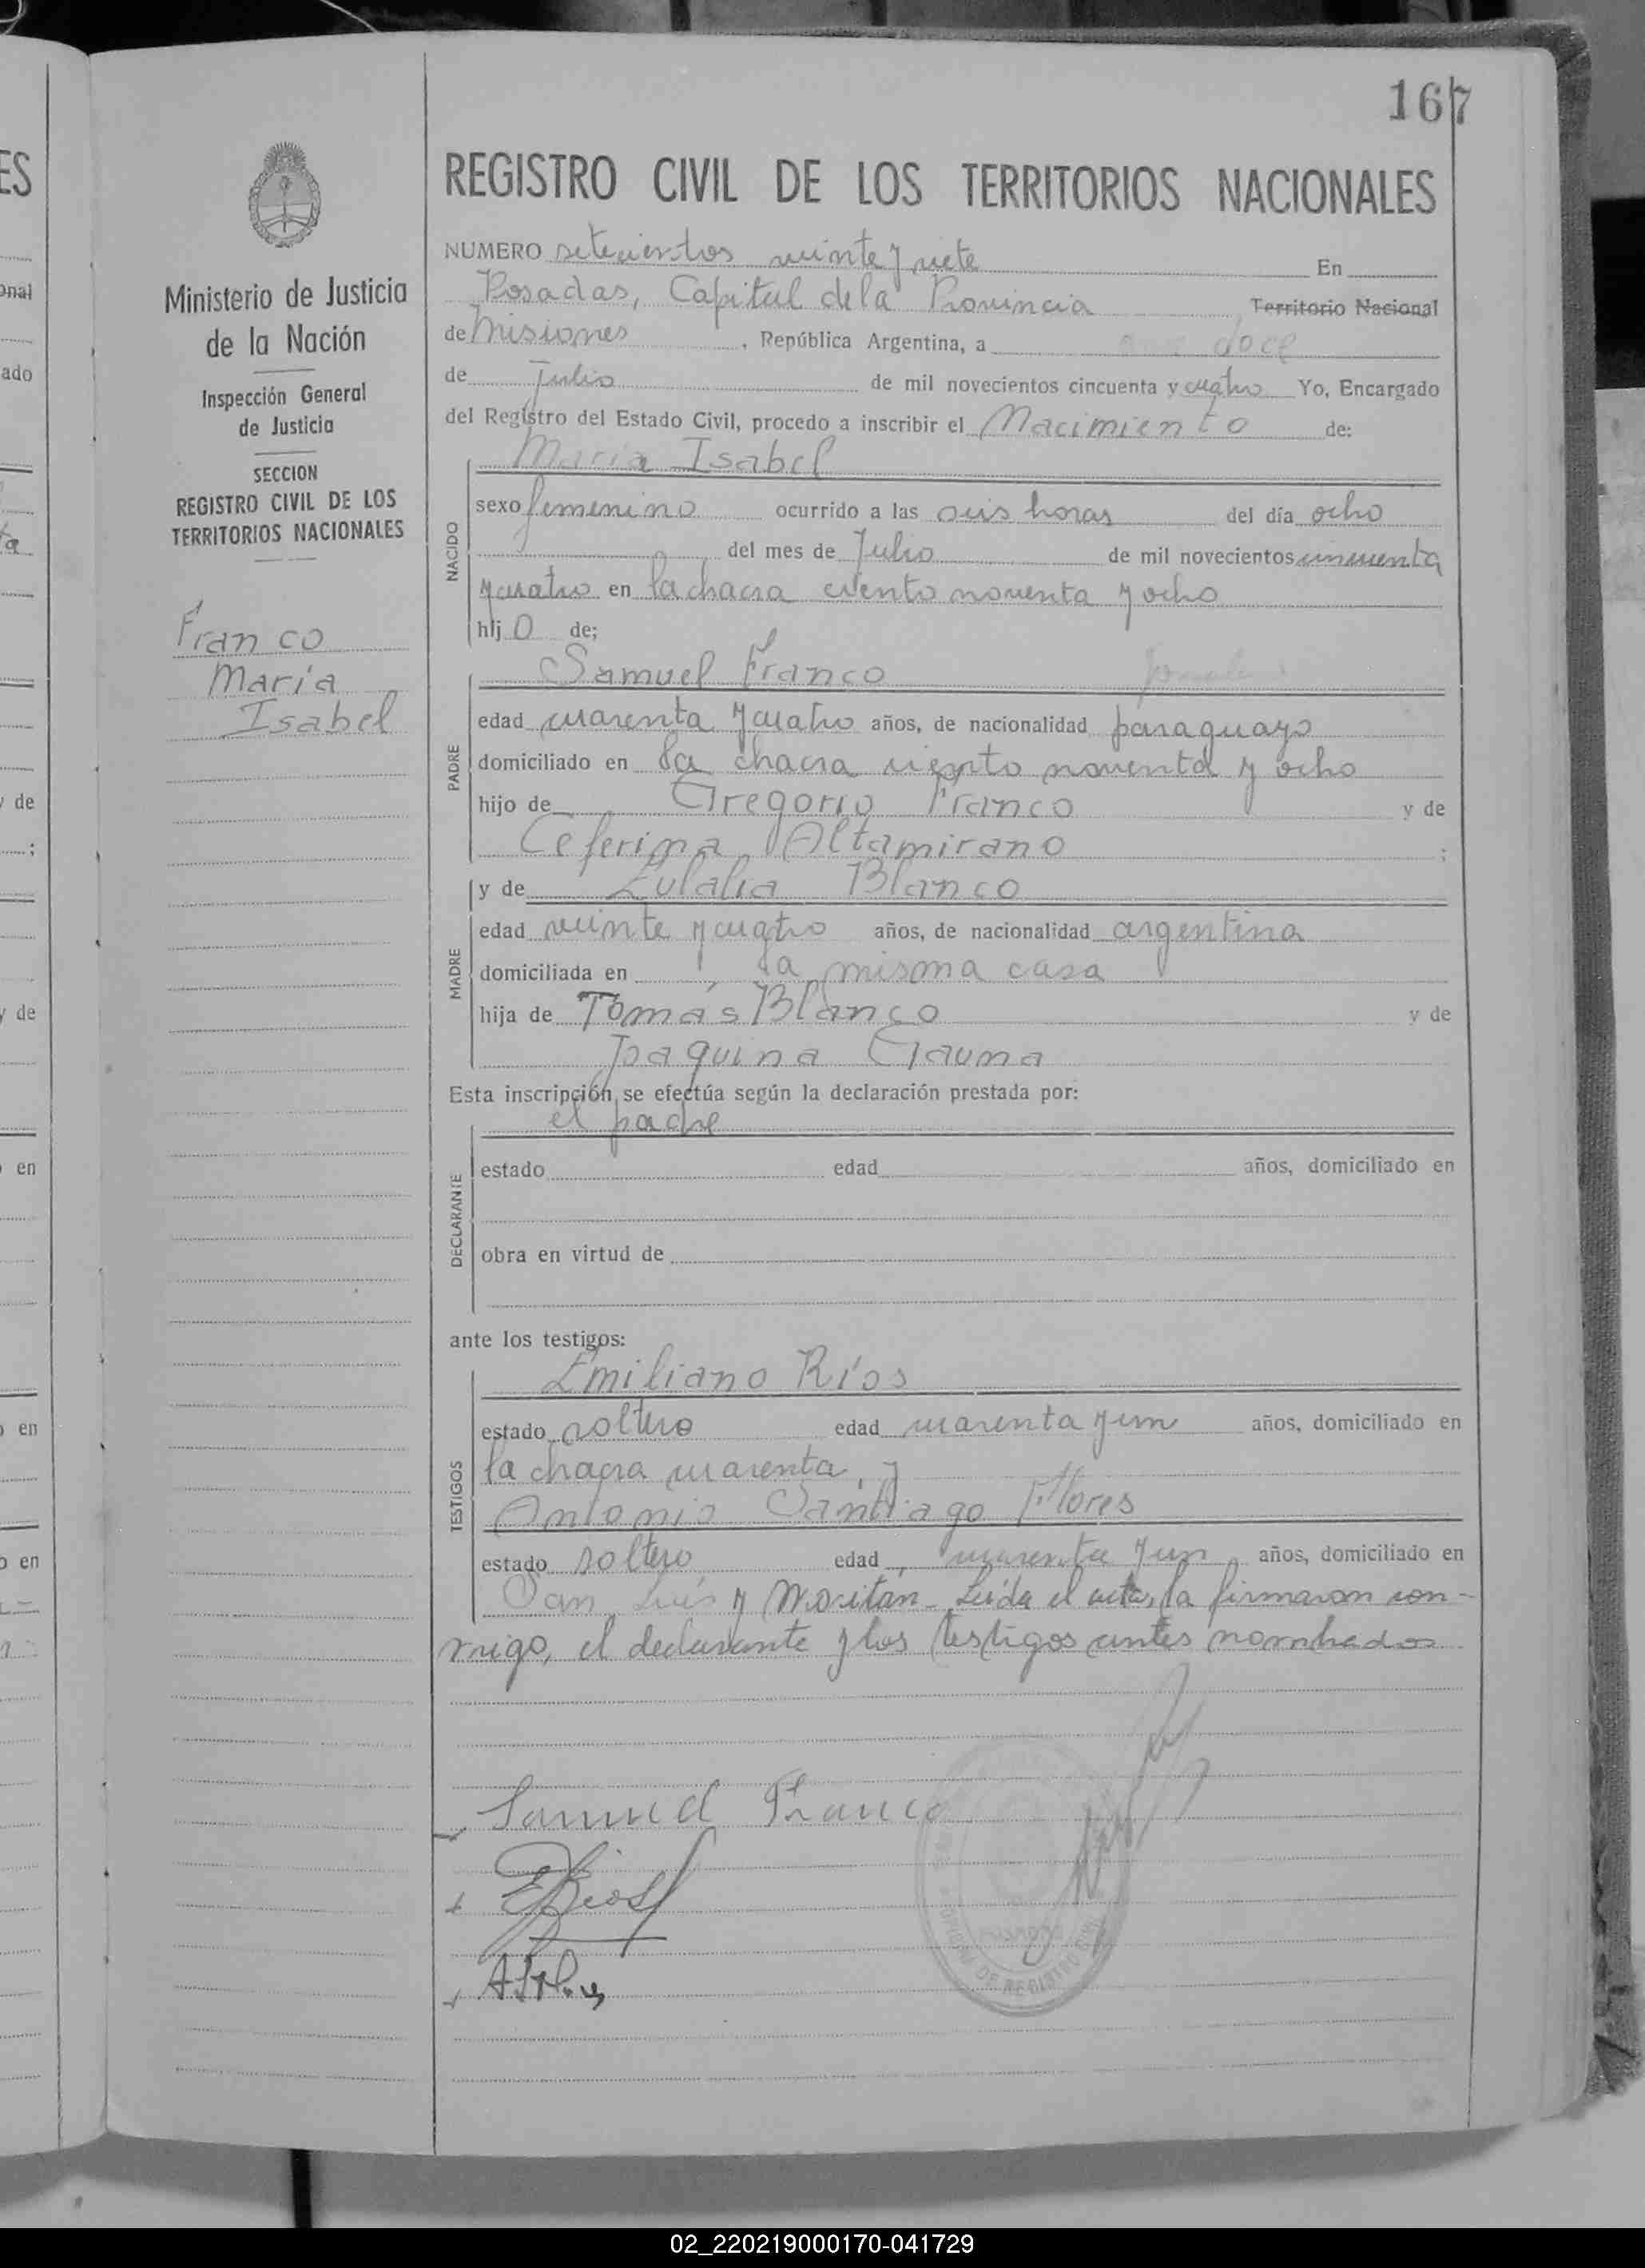 167
REGISTRO CIVIL DE LOS TERRITORIOS NACIONALES
Ministerio de Justicia
de la Nación
Inspección General
de Justicia
SECCION
REGISTRO CIVIL DE LOS
TERRITORIOS NACIONALES
Franco
María
Isabel
NUMERO setecientos veinte y siete En
Posadas, Capital de la Provincia Territorio Nacional
de Misiones, República Argentina, a doce
de Julio de mil novecientos cincuenta y cuatro Yo, Encargado
del Registro del Estado Civil, procedo a inscribir el Nacimiento de:
María Isabel
NACIDO
sexo femenino ocurrido a las seis horas del día ocho
del mes de Julio de mil novecientos cincuenta
y cuatro en la chacra ciento noventa y ocho
hij o de;
Samuel Franco
PADRE
edad cuarenta y cuatro años, de nacionalidad paraguayo
domiciliado en la chacra ciento noventa y ocho
hijo de Gregorio Franco y de
Ceferina Altamirano ;
y de Eulalia Blanco
MADRE
edad veinte y cuatro años, de nacionalidad argentina
domiciliada en la misma casa
hija de Tomás Blanco y de
Joaquina Gauna
Esta inscripción se efectúa según la declaración prestada por:
el padre
DECLARANTE
estado edad años, domiciliado en
obra en virtud de
ante los testigos:
Emiliano Ríos
TESTIGOS
estado soltero edad cuarenta y un años, domiciliado en
la chacra cuarenta, y
Antonio Santiago Flores
estado soltero edad cuarenta y un años, domiciliado en
San Luis y Moritán - Leída el acta, la firmaron con-
migo, el declarante y los testigos antes nombrados
Samuel Franco
ERios
02_220219000170-041729